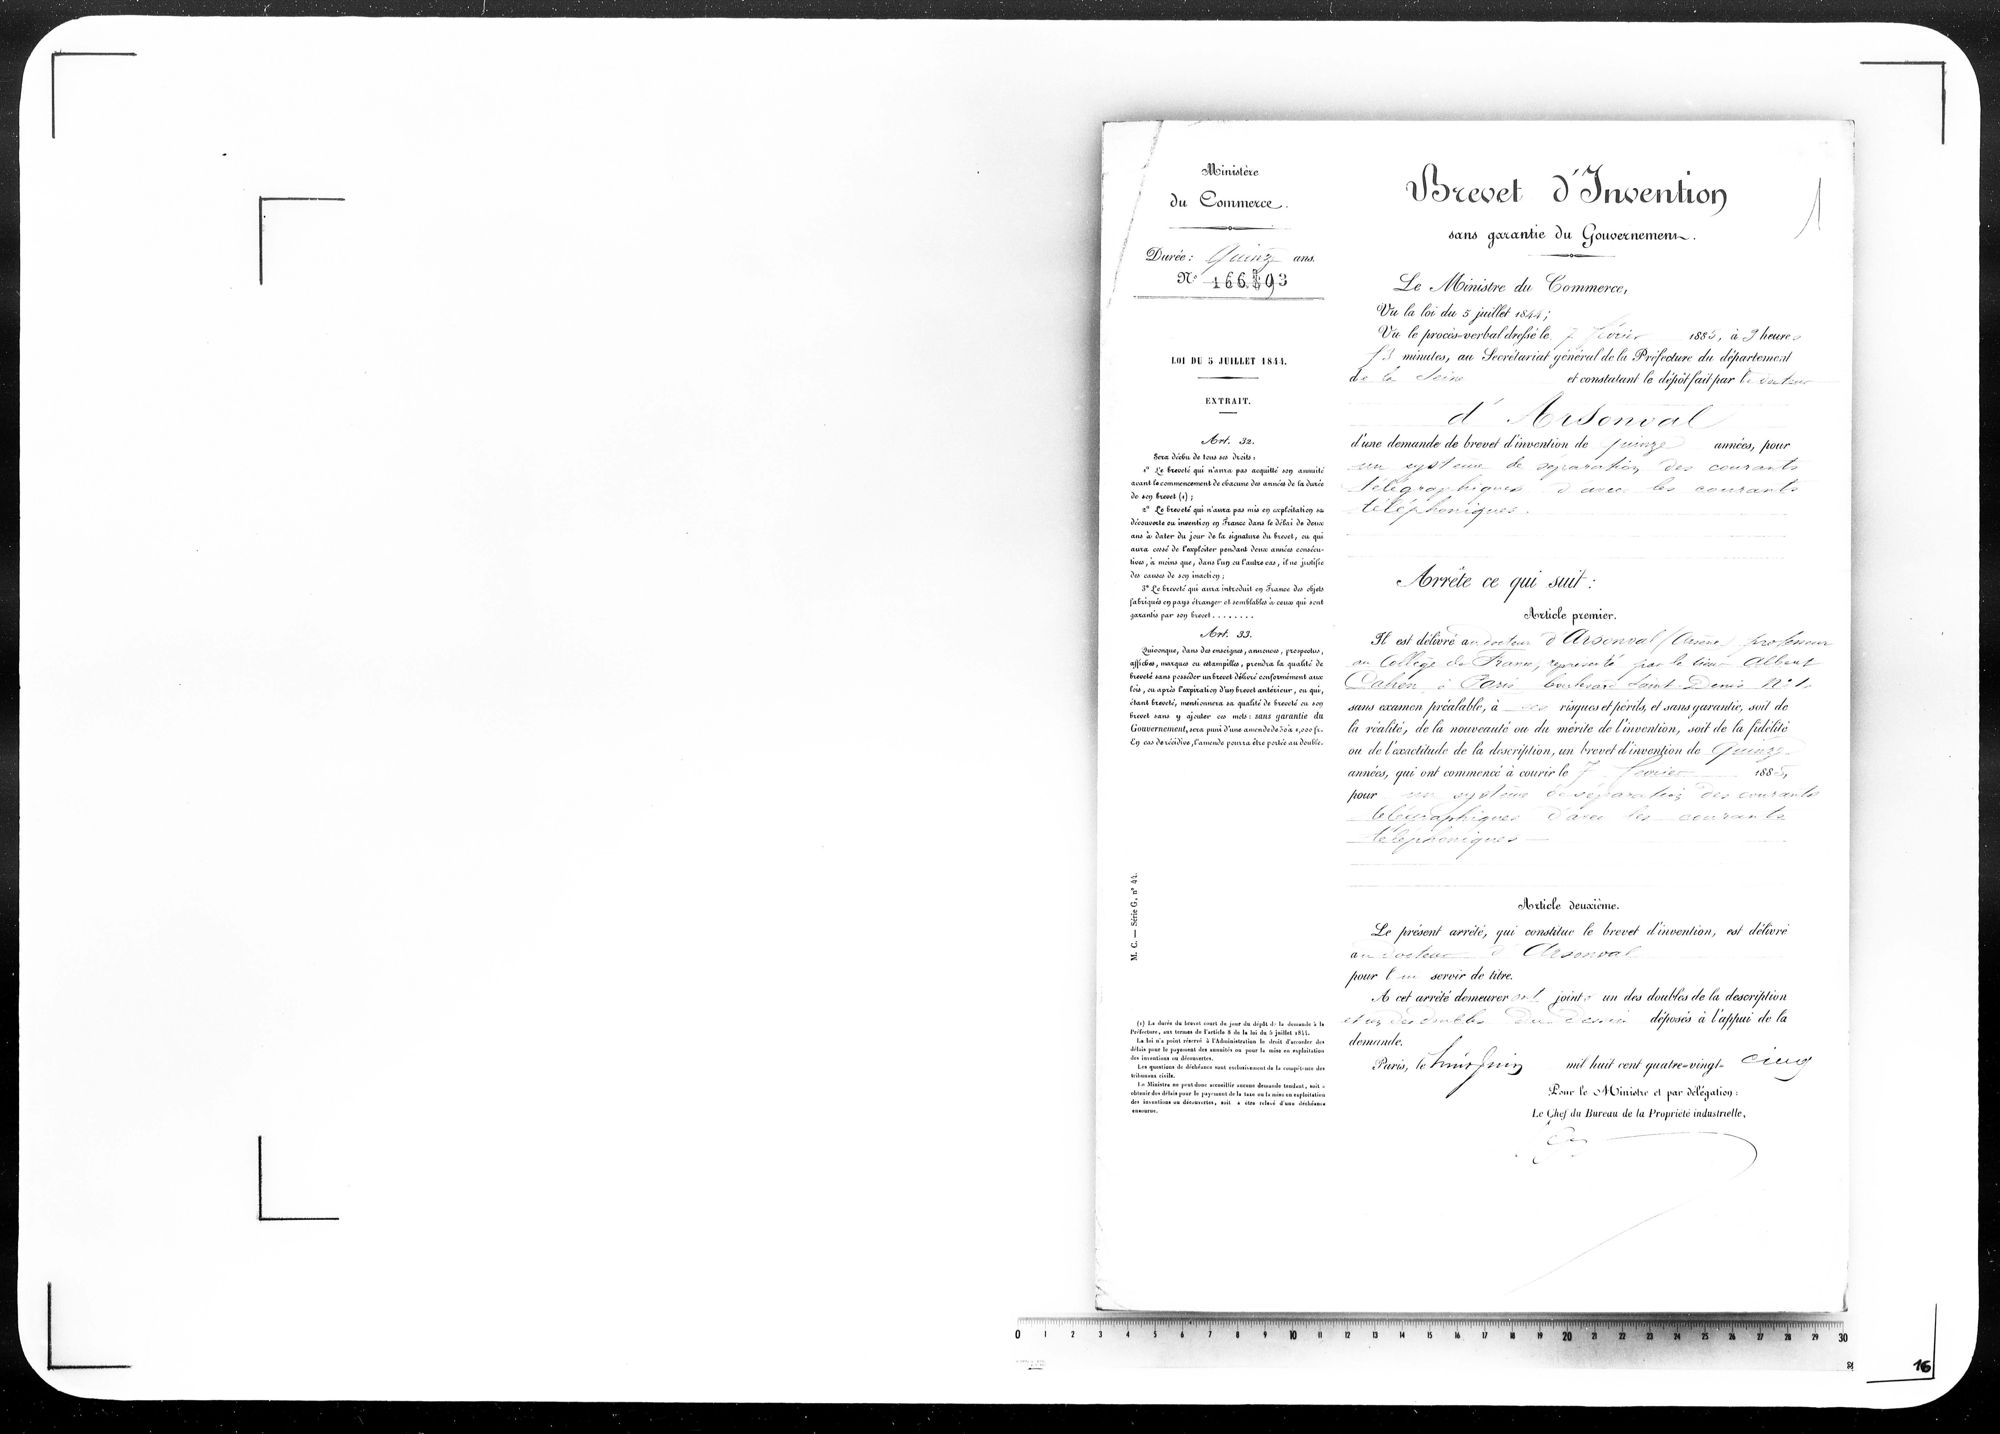 Ministère
du Commerce.
Durée : Quinze ans.
N° 166.893
LOI DU 5 JUILLET 1844.
EXTRAIT.
Art. 32.
Sera déchu de tous ses droits :
1° Le breveté qui n'aura pas acquitté son annuité
avant le commencement de chacune des années de la durée
de son brevet (1) ;
2° Le breveté qui n'aura pas mis en exploitation sa
découverte ou invention en France dans le délai de deux
ans à dater du jour de la signature du brevet, ou qui
aura cessé de l'exploiter pendant deux années consécu-
tives, à moins que, dans l'un ou l'autre cas, il ne justifie
des causes de son inaction ;
3° Le breveté qui aura introduit en France des objets
fabriqués en pays étranger et semblables à ceux qui sont
garantis par son brevet . . . . . . . .
Art. 33.
Quiconque, dans des enseignes, annonces, prospectus,
affiches, marques ou estampilles, prendra la qualité de
breveté sans posséder un brevet délivré conformément aux
lois, ou après l'expiration d'un brevet antérieur, ou qui,
étant breveté, mentionnera sa qualité de breveté ou son
brevet sans y ajouter ces mots : sans garantie du
Gouvernement, sera puni d'une amende de 50 à 1,000 fr.
En cas de récidive, l'amende pourra être portée au double.
M. C. — Série G, n° 44.
(1) La durée du brevet court du jour du dépôt de la demande à la
Préfecture, aux termes de l'article 8 de la loi du 5 juillet 1844.
La loi n'a point réservé à l'Administration le droit d'accorder des
délais pour le payement des annuités ou pour la mise en exploitation
des inventions ou découvertes.
Les questions de déchéance sont exclusivement de la compétence des
tribunaux civils.
Le Ministre ne peut donc accueillir aucune demande tendant, soit à
obtenir des délais pour le payement de la taxe ou la mise en exploitation
des inventions ou découvertes, soit à être relevé d'une déchéance
encourue.
Brevet d'Invention
1
sans garantie du Gouvernement.
Le Ministre du Commerce,
Vu la loi du 5 juillet 1844 ;
Vu le procès-verbal dressé le 7 février 1885, à 3 heures
minutes, au Secrétariat général de la Préfecture du département
de la Seine et constatant le dépôt fait par le docteur
d'Arsonval
d'une demande de brevet d'invention de quinze années, pour
un système de séparation des courants
télégraphiques d'avec les courants
téléphoniques.
Arrête ce qui suit :
Article premier.
Il est délivré au docteur d'Arsonval (Arsène) professeur
au Collège de France, représenté par le sieur Albert
Cahen, à Paris boulevard Saint-Denis N° 1.
sans examen préalable, à ses risques et périls, et sans garantie, soit de
la réalité, de la nouveauté ou du mérite de l'invention, soit de la fidélité
ou de l'exactitude de la description, un brevet d'invention de Quinze
années, qui ont commencé à courir le 7 février 1885,
pour un système de séparation des courants
télégraphiques d'avec les courants
téléphoniques
Article deuxième.
Le présent arrêté, qui constitue le brevet d'invention, est délivré
au docteur d'Arsonval
pour lui servir de titre.
A cet arrêté demeureront joints un des doubles de la description
et un des doubles du dessin déposés à l'appui de la
demande.
Paris, le huit Juin mil huit cent quatre-vingt-cinq
Pour le Ministre et par délégation :
Le Chef du Bureau de la Propriété industrielle,
0 1 2 3 4 5 6 7 8 9 10 11 12 13 14 15 16 17 18 19 20 21 22 23 24 25 26 27 28 29 30
16